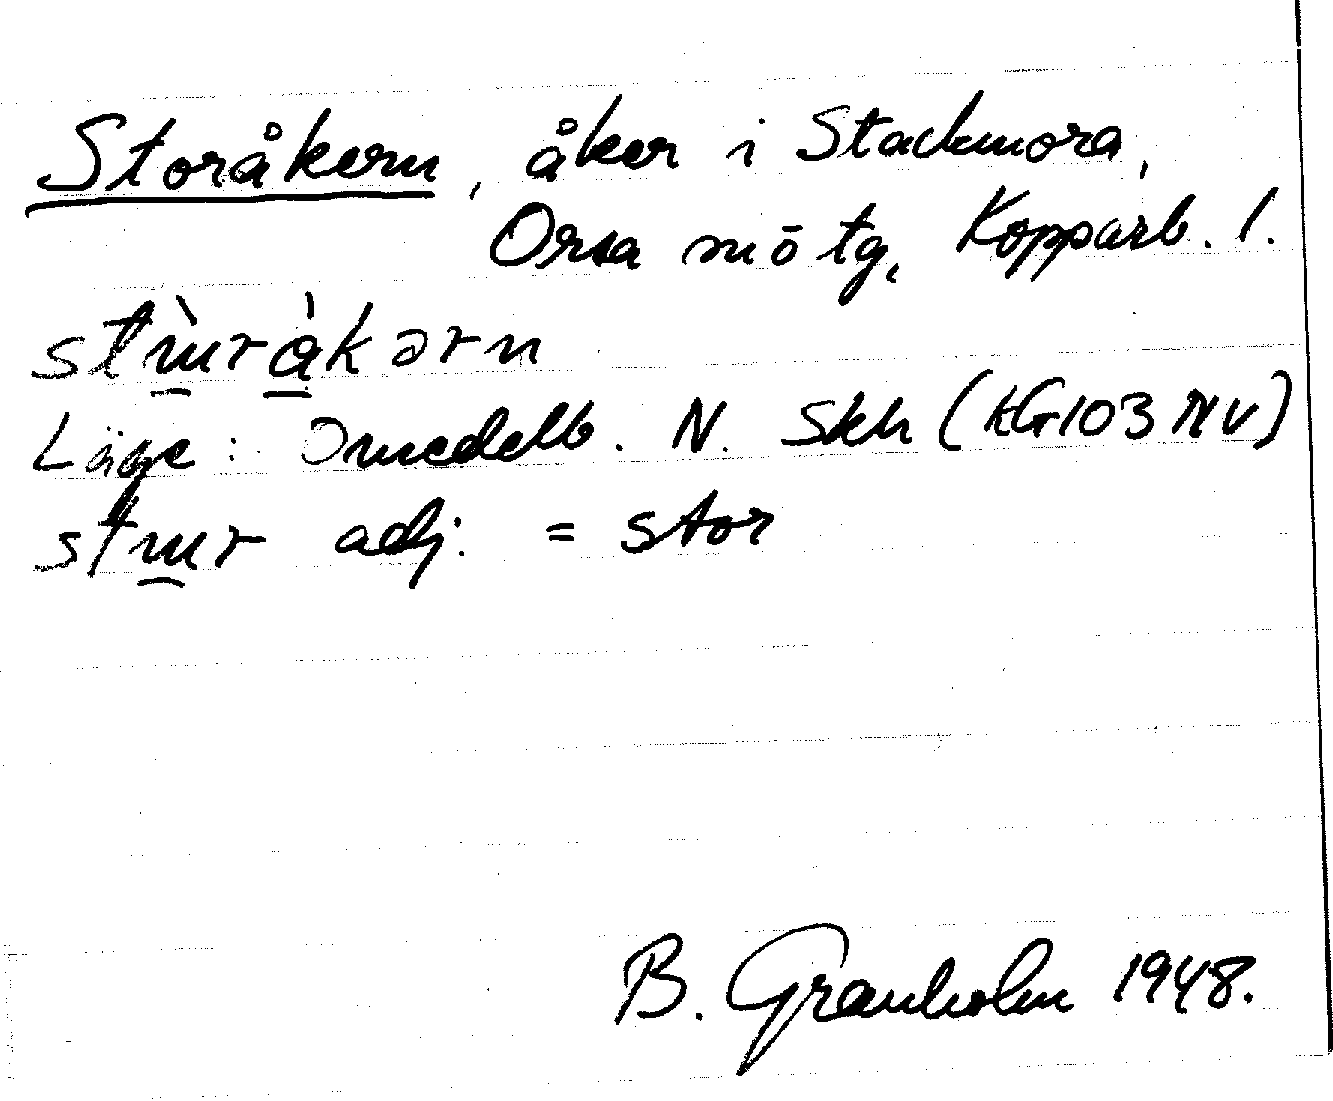 Storåkern, åker i Stackmora,
Orsa sn ö tg, Kopparb. l.
stɯ̀ràkərn
Läge: Omedelb. N. Skh (kG103 NV)
stɯr adj. = stor
B. Granholm 1948.